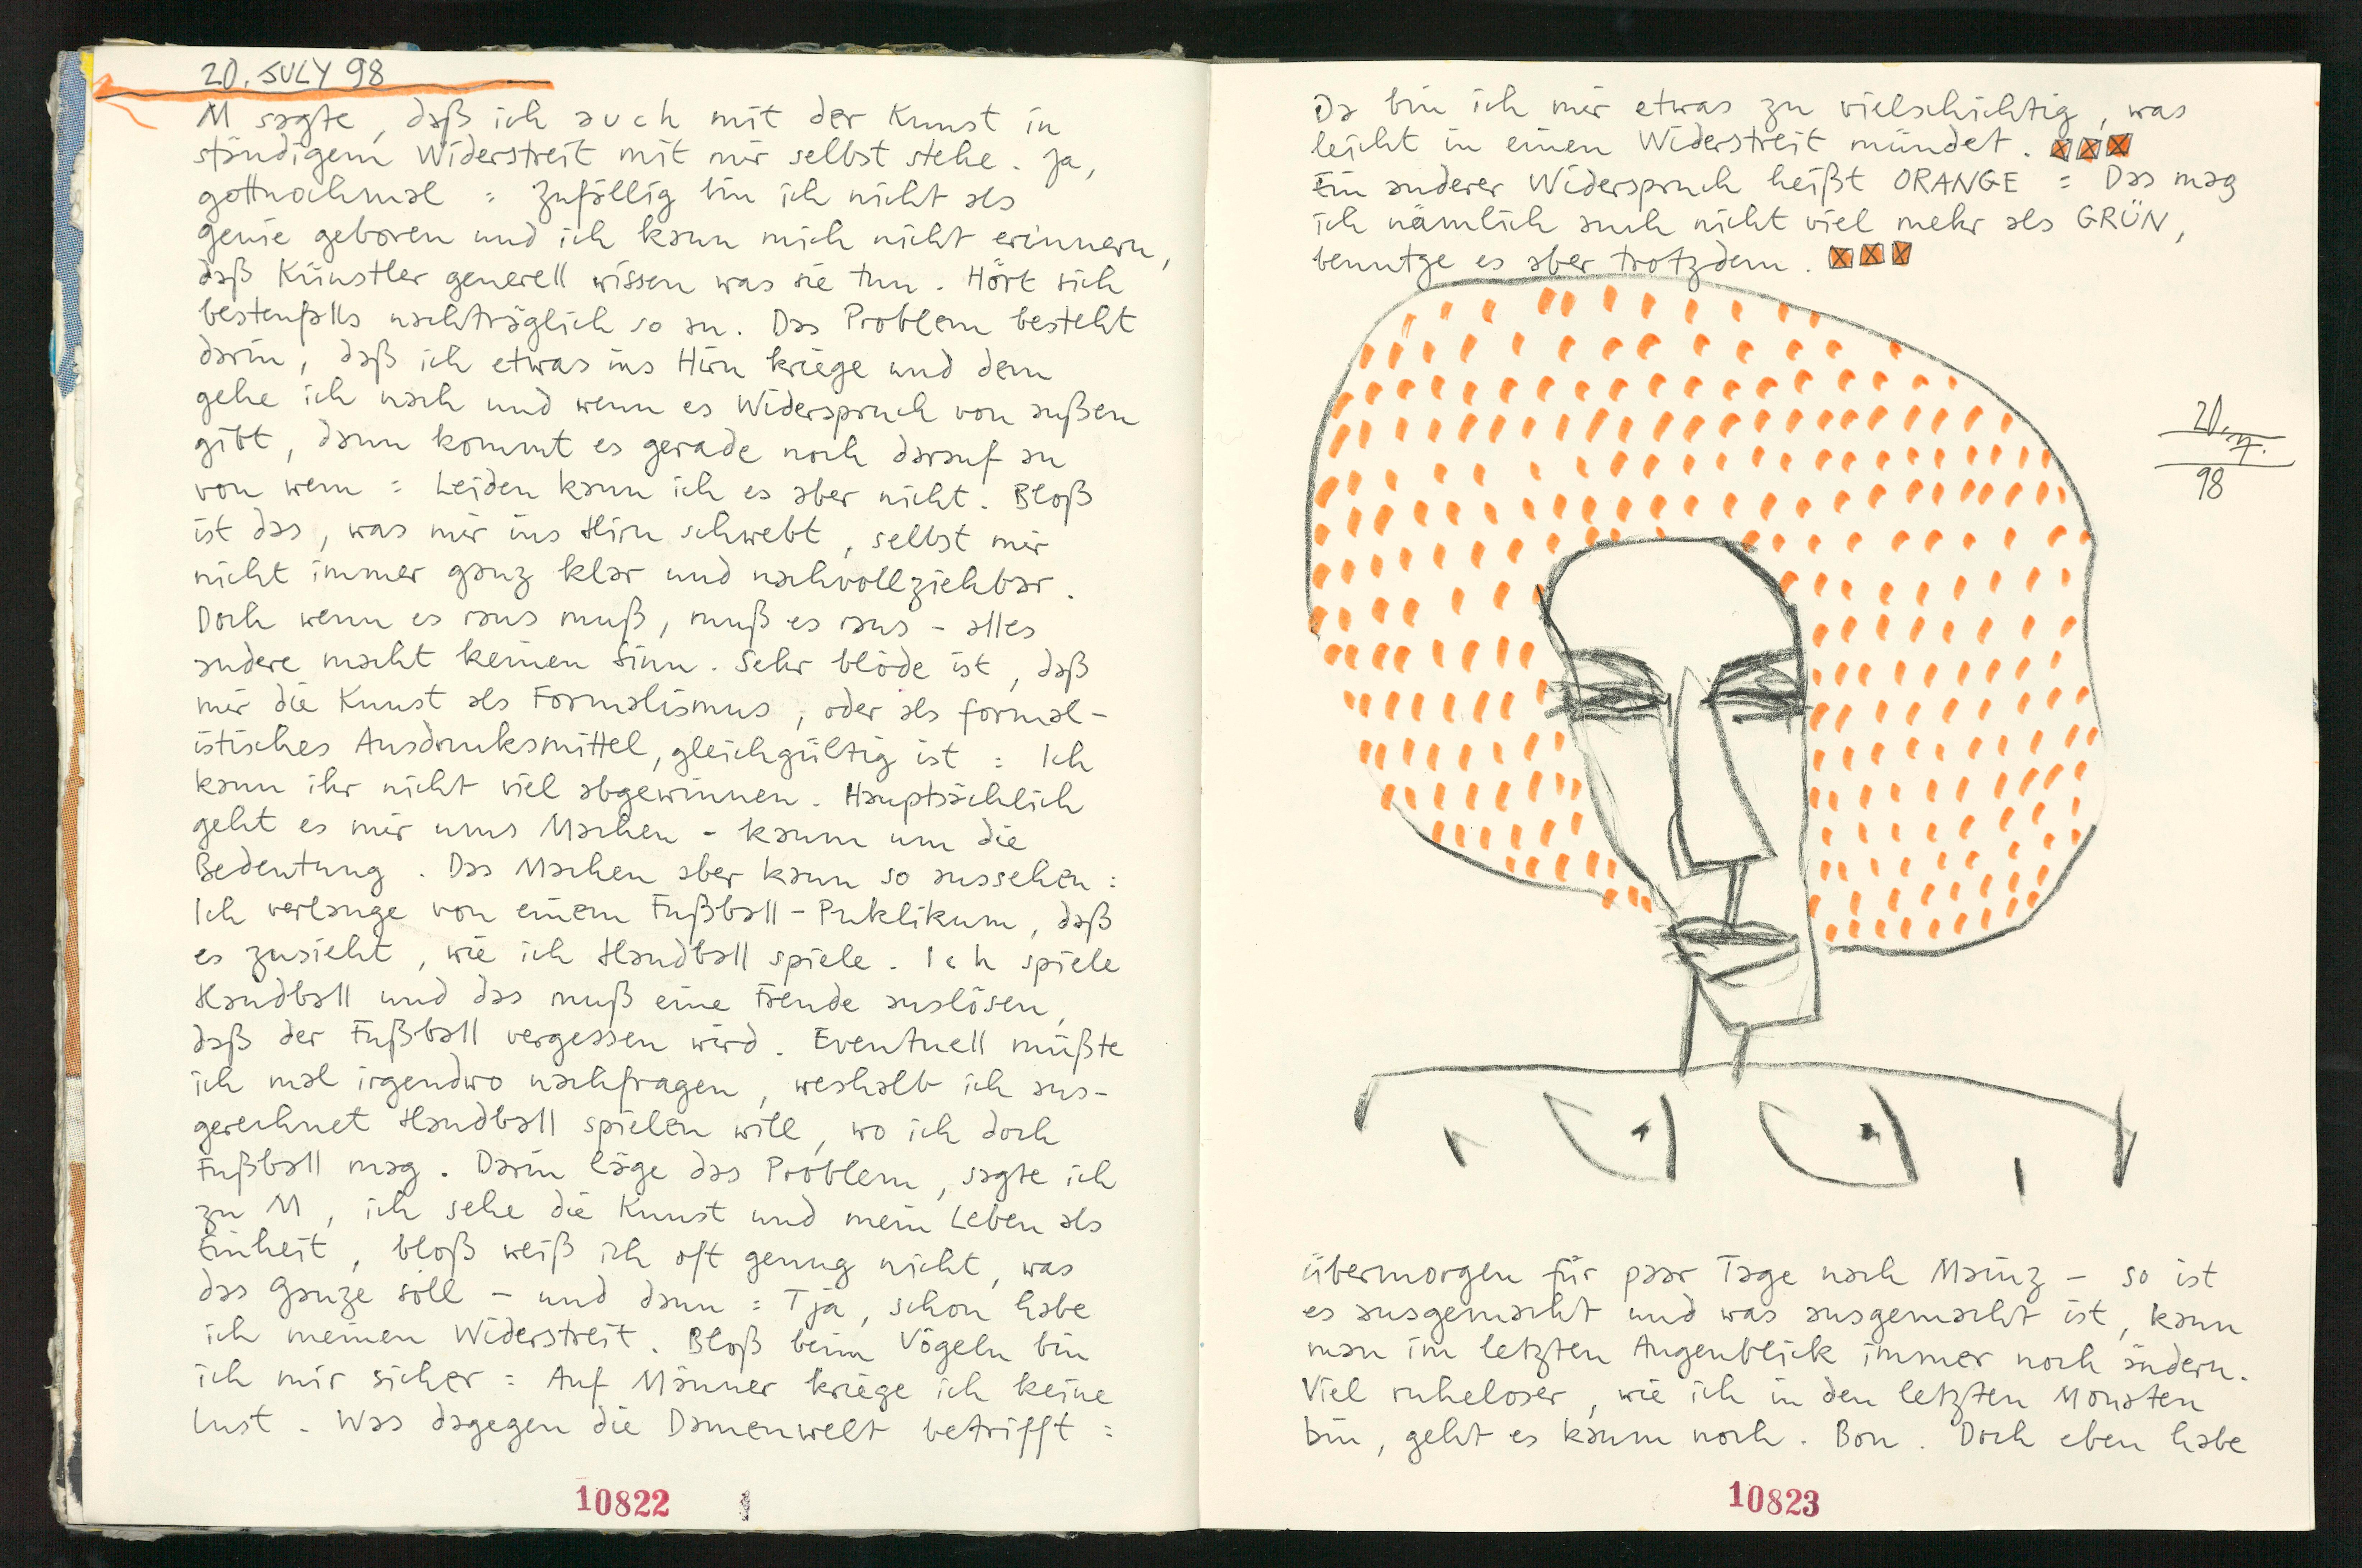 20. JULY 98
M sagte, daß ich auch mit der Kunst in
ständigem Widerstreit mit mir selbst stehe. Ja,
gottnochmal : Zufällig bin ich nicht als
Genie geboren und ich kann mich nicht erinnern,
daß Künstler generell wissen was sie tun. Hört sich
bestenfalls nachträglich so an. Das Problem besteht
darin, daß ich etwas ins Hirn kriege und dem
gehe ich nach und wenn es Widerspruch von außen
gibt, dann kommt es gerade noch darauf an
von wem : Leiden kann ich es aber nicht. Bloß
ist das, was mir ins Hirn schwebt, selbst mir
nicht immer ganz klar und nachvollziehbar.
Doch wenn es raus muß, muß es raus - alles
andere macht keinen Sinn. Sehr blöde ist, daß
mir die Kunst als Formalismus, oder als formal-
istisches Ausdruksmittel, gleichgültig ist : Ich
kann ihr nicht viel abgewinnen. Hauptsächlich
geht es mir ums Machen - kaum um die
Bedeutung. Das Machen aber kann so aussehen :
Ich verlange von einem Fußball-Puklikum, daß
es zusieht, wie ich Handball spiele. Ich spiele
Handball und das muß eine Freude auslösen,
daß der Fußball vergessen wird. Eventuell müßte
ich mal irgendwo nachfragen, weshalb ich aus-
gerechnet Handball spielen will, wo ich doch
Fußball mag. Darin läge das Problem, sagte ich
zu M, ich sehe die Kunst und mein Leben als
Einheit, bloß weiß ich oft genug nicht, was
das Ganze soll - und dann : Tja, schon habe
ich meinen Widerstreit. Bloß beim Vögeln bin
ich mir sicher : Auf Männer kriege ich keine
Lust. Was dagegen die Damenwelt betrifft :
10822
Da bin ich mir etwas zu vielschichtig, was
leicht in einen Widerstreit mündet.
Ein anderer Widerspruch heißt ORANGE : Das mag
ich nämlich auch nicht viel mehr als GRÜN,
benutze es aber trotzdem.
20. 7.
98
übermorgen für paar Tage nach Mainz - so ist
es ausgemacht und was ausgemacht ist, kann
man im letzten Augenblick immer noch ändern.
Viel ruheloser, wie ich in den letzten Monaten
bin, geht es kaum noch. Bon. Doch eben habe
10823